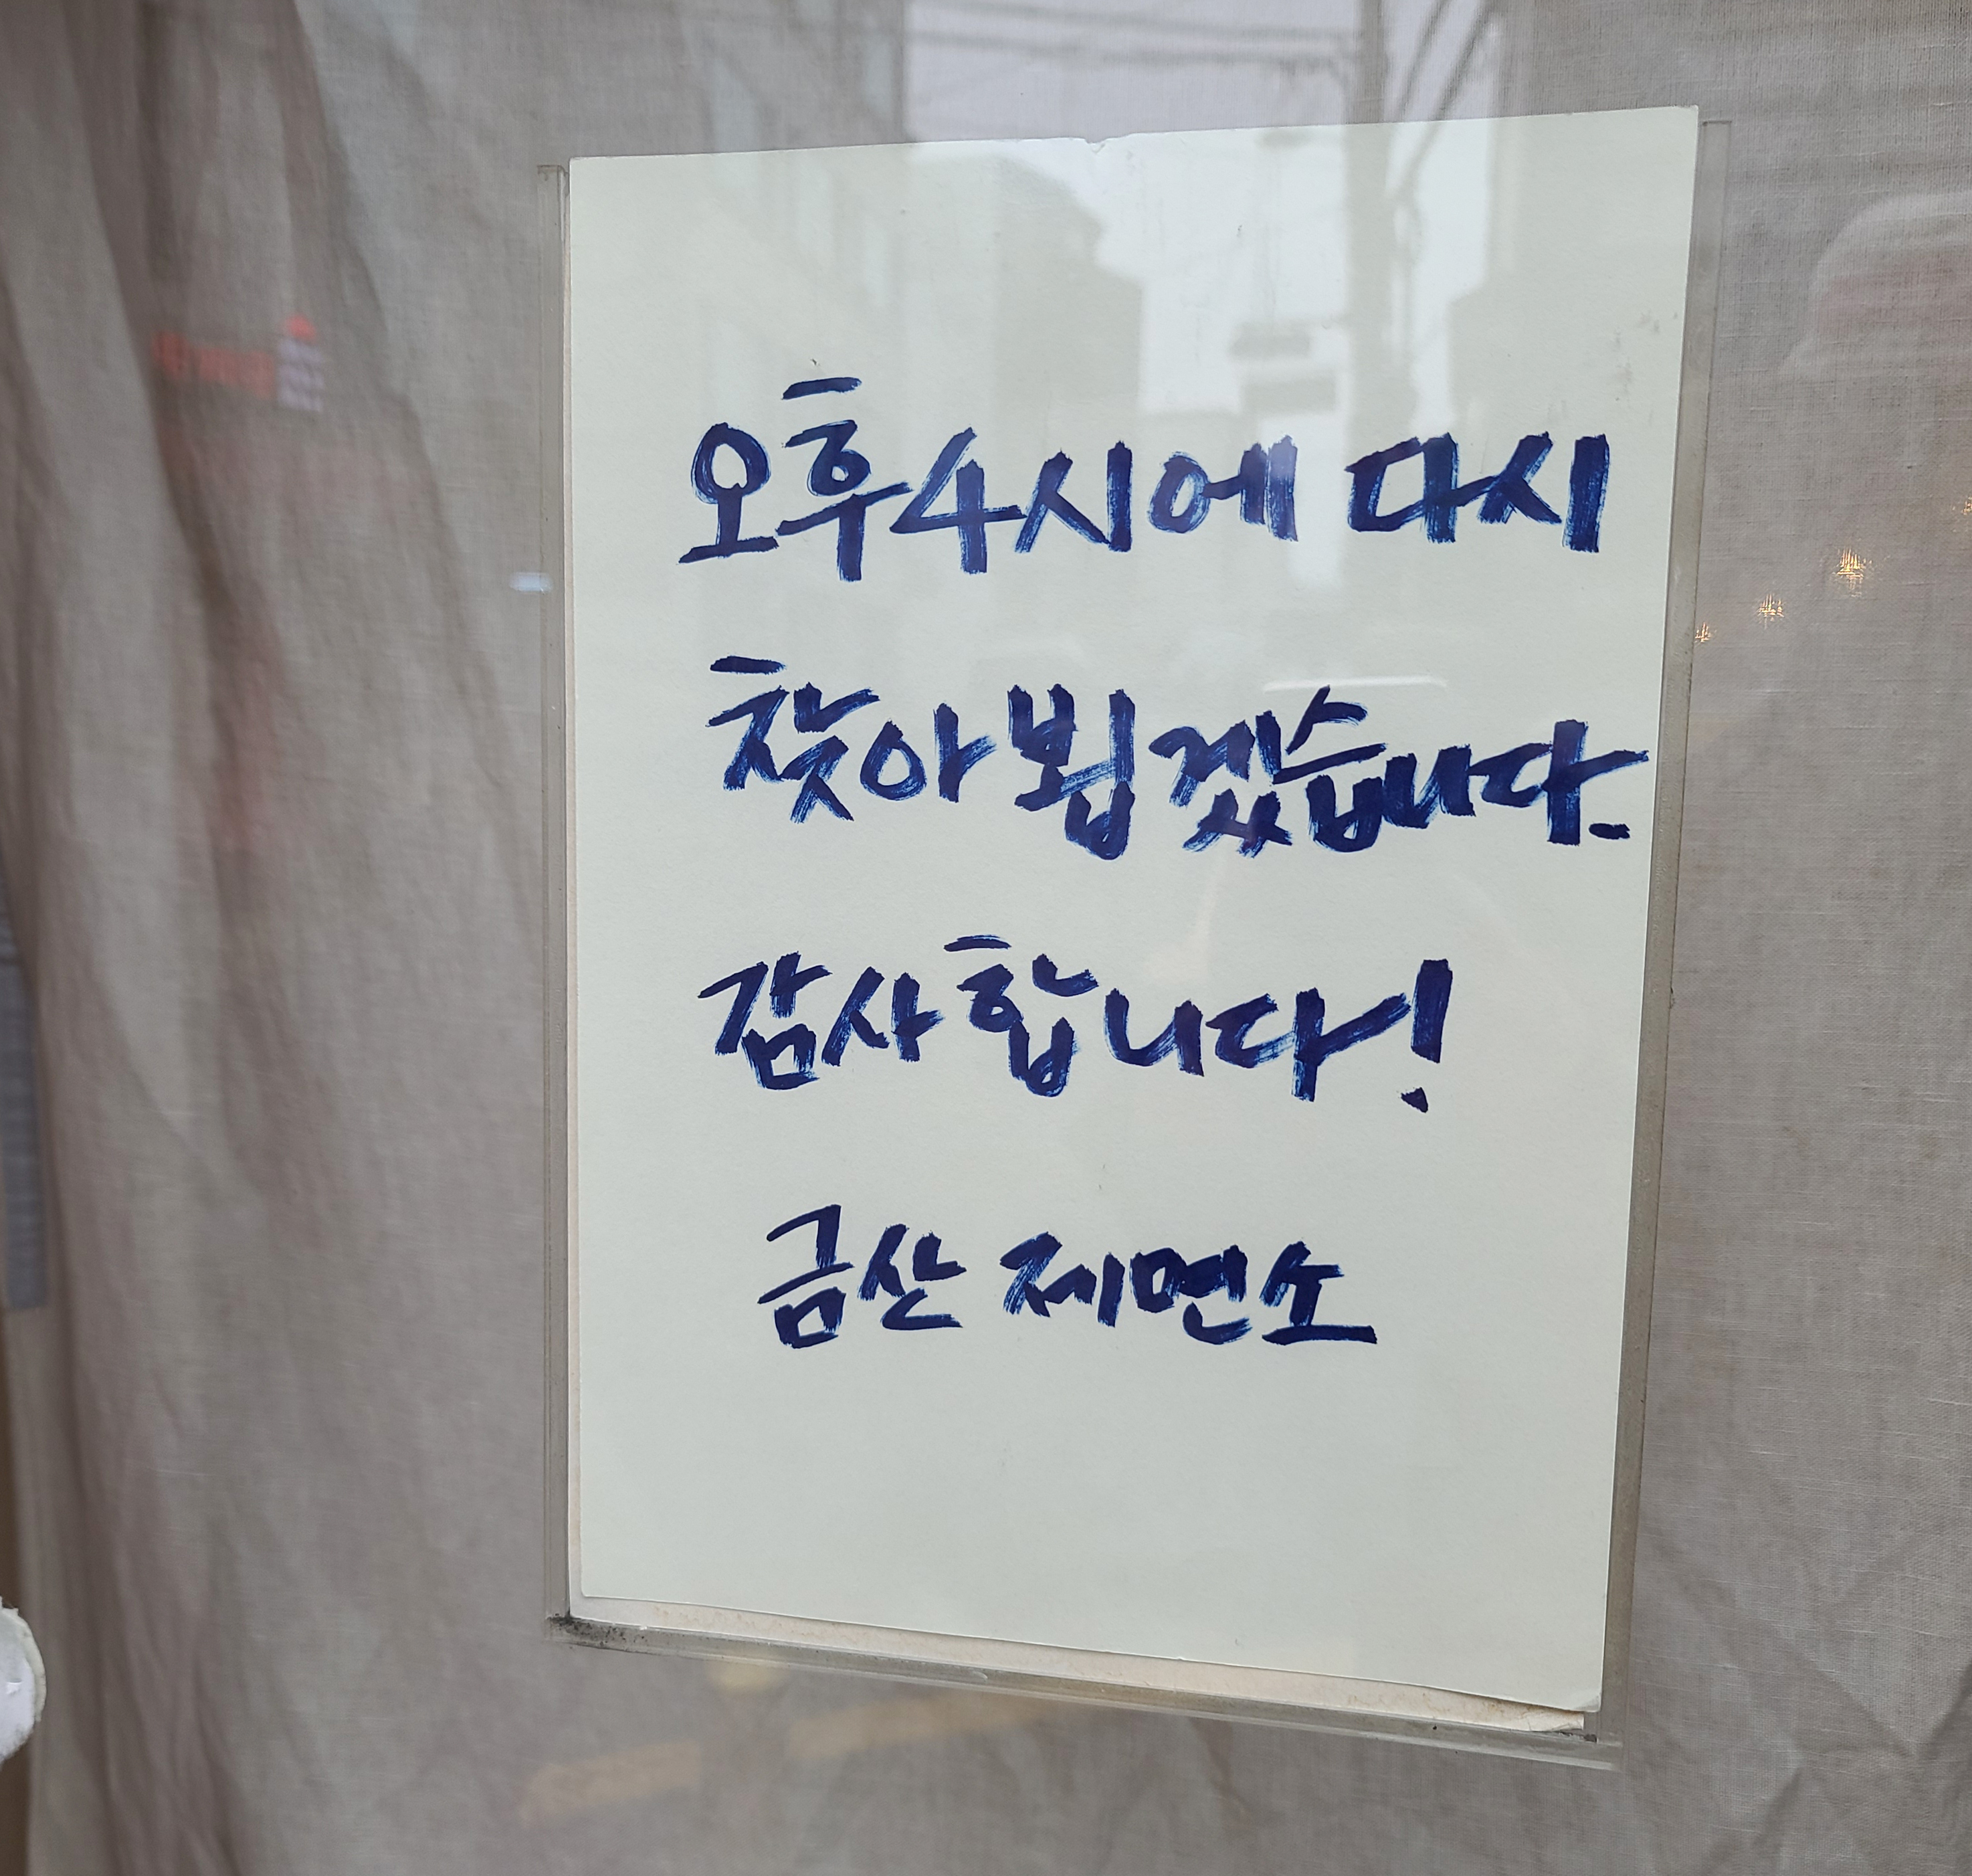 오후4시에 다시
찾아뵙겠습니다.
감사합니다!
금산 제면소